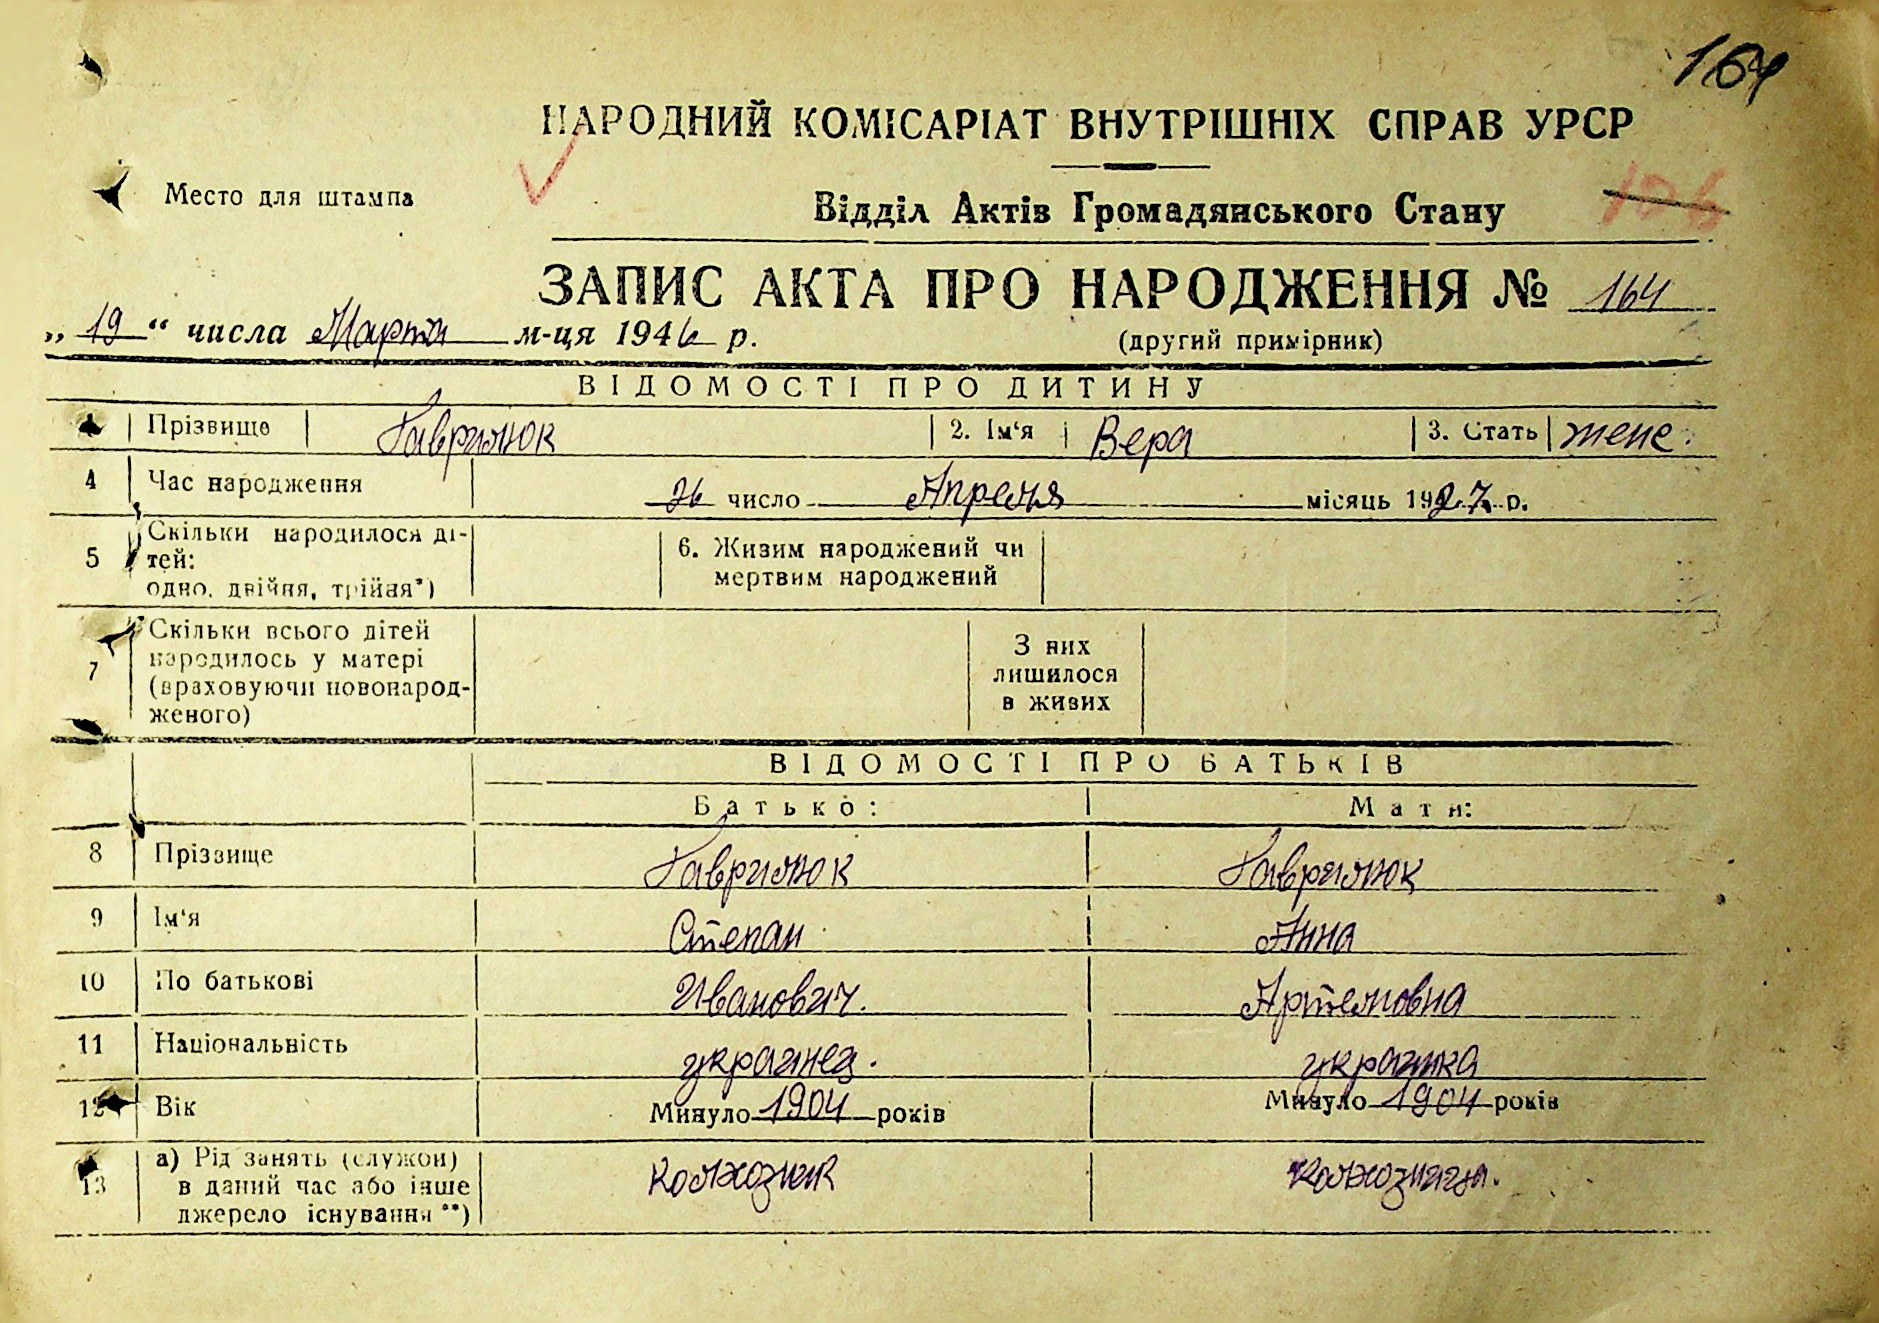 164
НАРОДНИЙ КОМІСАРІАТ ВНУТРІШНІХ СПРАВ УРСР
Место для штампа
Відділ Актів Громадянського Стану
106
ЗАПИС АКТА ПРО НАРОДЖЕННЯ № 164
„ 19 “ числа Марта м-ця 1946 р.
(другий примірник)
ВІДОМОСТІ ПРО ДИТИНУ
1 Прізвище Гаврилюк 2. Ім‘я Вера 3. Стать женс.
4 Час народження 26 число Апреля місяць 1927 р.
5 Скільки народилося ді-
тей:
одно, двійня, трійня*)
6. Живим народжений чи
мертвим народжений
7 Скільки всього дітей
народилось у матері
(враховуючи новонарод-
женого)
З них
лишилося
в живих
ВІДОМОСТІ ПРО БАТЬКІВ
Батько: Мати:
8 Прізвище Гаврилюк Гаврилюк
9 Ім‘я Степан Анна
10 По батькові Иванович. Артемовна
11 Національність украинец. украинка
12 Вік Минуло 1904 років Минуло 1904 років
13 а) Рід занять (служби)
в даний час або інше
джерело існування **)
колхозник колхозница.